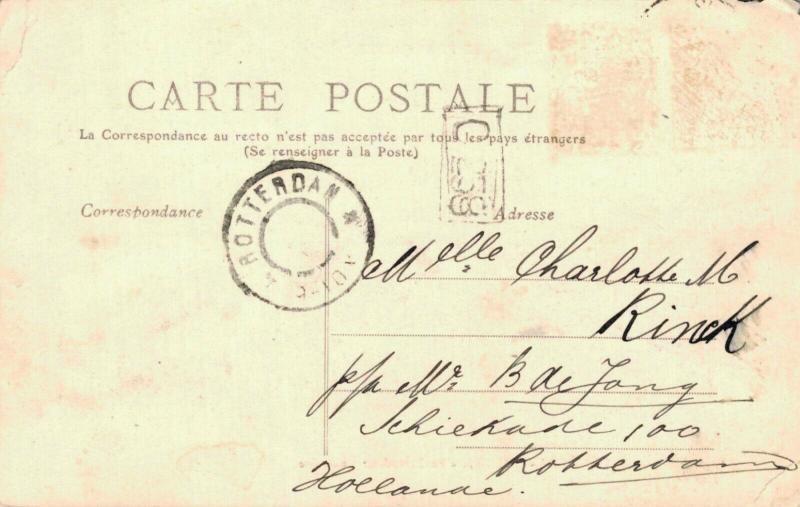 CARTE POSTALE
La Correspondance au recto n'est pas acceptée par tous les pays étrangers
(Se renseigner à la Poste)
Correspondance
Adresse
ROTTERDAM
Melle Charlotte M
Rinck
p/a Mr B de Jong
Schiekade 100
Rotterdam
Hollande.